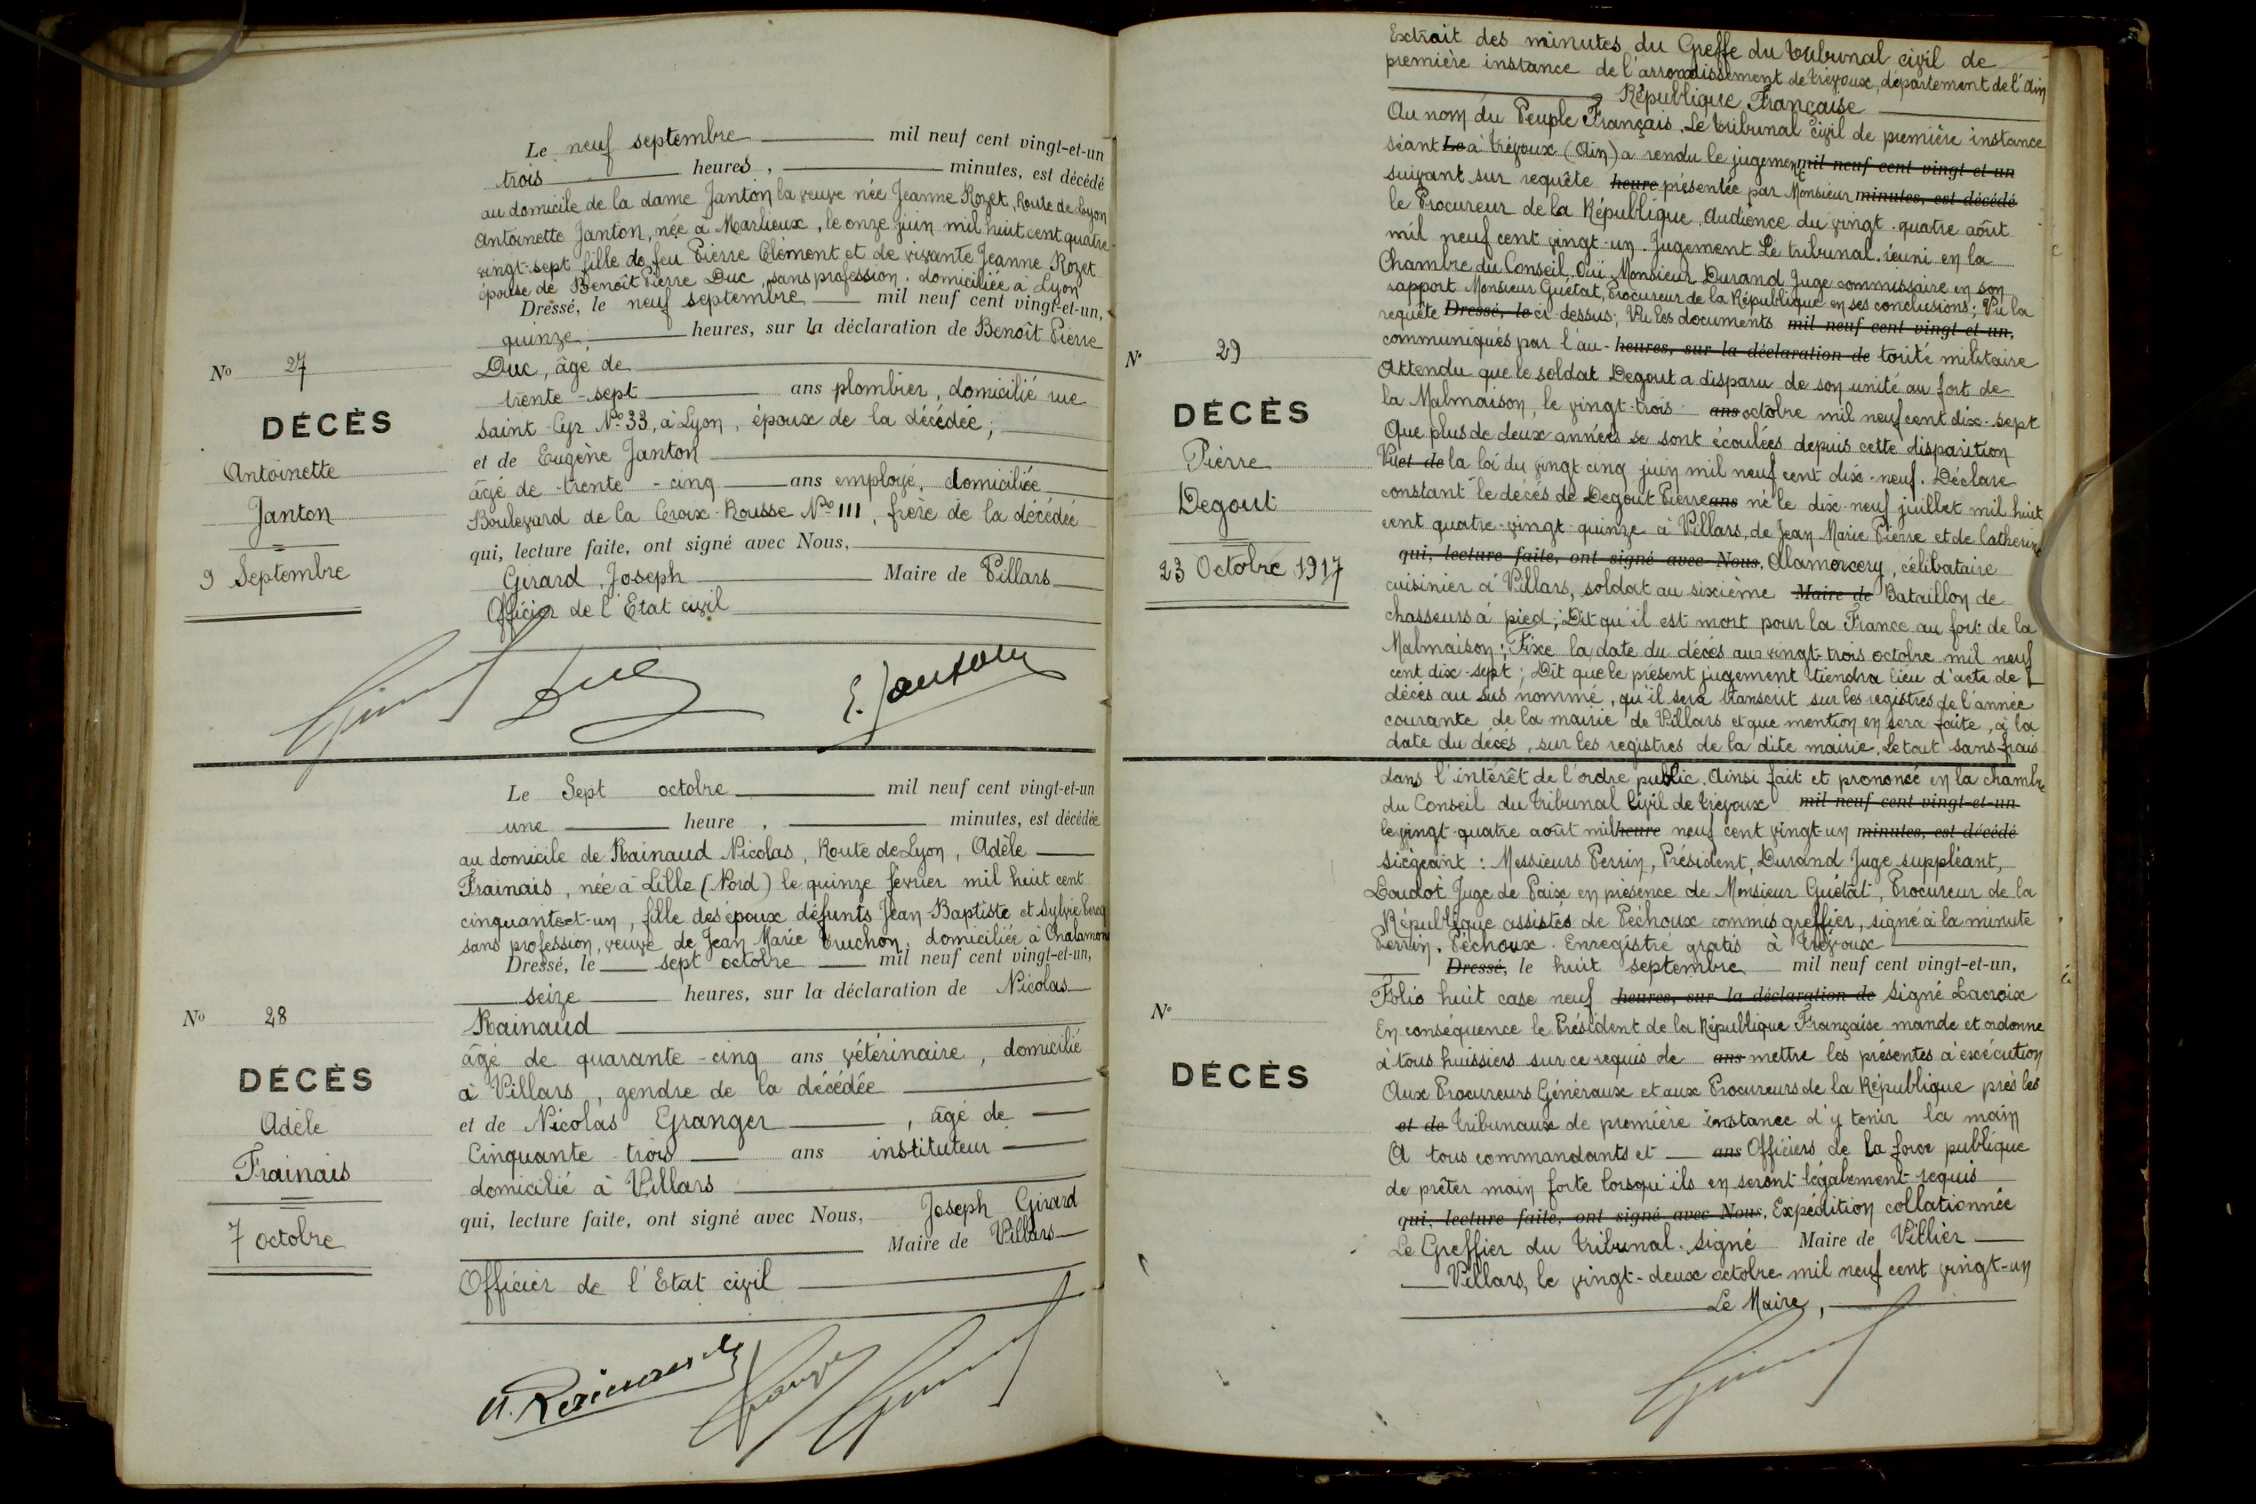 Le neuf septembre mil neuf cent vingt-et-un
trois heures, minutes, est décédé
au domicile de la dame Janton la veuve née Jeanne Rozet, Route de Lyon
Antoinette Janton, née à Marlieux, le onze juin mil huit cent quatre-
vingt-sept fille de feu Pierre Clément et de vivante Jeanne Rozet
épouse de Benoît Pierre Duc, sans profession, domiciliée à Lyon
Dressé, le neuf septembre mil neuf cent vingt-et-un,
quinze heures, sur la déclaration de Benoît Pierre
Duc, âgé de
trente-sept ans plombier, domicilié rue
Saint Cyr No 33, à Lyon, époux de la décédée;
et de Eugène Janton
âgé de trente-cinq ans employé, domiciliée
Boulevard de la Croix-Rousse No 111, frère de la décédée
qui, lecture faite, ont signé avec Nous,
Girard Joseph Maire de Villars
Officier de l'Etat civil
No 27
DÉCÈS
Antoinette
Janton
9 Septembre
Duc E. Janton
Le Sept octobre mil neuf cent vingt-et-un
une heure, minutes, est décédée
au domicile de Rainaud Nicolas, Route de Lyon, Adèle
Frainais, née à Lille (Nord) le quinze février mil huit cent
cinquante-et-un, fille des époux défunts Jean-Baptiste et Sylvie
sans profession, veuve de Jean Marie Truchon, domiciliée à Chalamont
Dressé, le sept octobre mil neuf cent vingt-et-un,
seize heures, sur la déclaration de Nicolas
Rainaud
âgé de quarante-cinq ans vétérinaire, domicilié
à Villars, gendre de la décédée
et de Nicolas Granger, âgé de
Cinquante trois ans instituteur
domicilié à Villars
qui, lecture faite, ont signé avec Nous, Joseph Girard
Maire de Villars
Officier de l'Etat civil
No 28
DÉCÈS
Adèle
Frainais
7 octobre
Extrait des minutes du Greffe du tribunal civil de
première instance de l'arrondissement de Trévoux, département de l'Ain
République Française
Au nom du Peuple Français. Le tribunal civil de première instance
séant Le à Trévoux (Ain) a rendu le jugement mil neuf cent vingt-et-un
suivant sur requête heure présentée par Monsieur minutes, est décédé
le Procureur de la République. Audience du vingt-quatre août
mil neuf cent vingt-un. Jugement Le tribunal réuni en la
Chambre du Conseil. Ouï Monsieur Durand Juge commissaire en son
rapport Monsieur Guétat, Procureur de la République en ses conclusions; Vu la
requête Dressé, le ci-dessus; Vu les documents mil neuf cent vingt-et-un,
communiqués par l'au- heures, sur la déclaration de torité militaire
Attendu que le soldat Degout a disparu de son unité au fort de
la Malmaison, le vingt-trois ans octobre mil neuf cent dix-sept
Que plus de deux années se sont écoulées depuis cette disparition
Vu et de la loi du vingt cinq juin mil neuf cent dix-neuf. Déclare
constant le décès de Degout Pierre ans né le dix-neuf juillet mil huit
cent quatre-vingt-quinze à Villars, de Jean Marie Pierre et de Catherine
qui, lecture faite, ont signé avec Nous, Alamercery, célibataire
cuisinier à Villars, soldat au sixième Maire de Bataillon de
chasseurs à pied; Dit qu'il est mort pour la France au fort de la
Malmaison; Fixe la date du décès au vingt-trois octobre mil neuf
cent dix-sept; Dit que le présent jugement tiendra lieu d'acte de
décès au sus nommé, qu'il sera transcrit sur les registres de l'année
courante de la mairie de Villars et que mention en sera faite, à la
date du décès, sur les registres de la dite mairie, Le tout sans frais
dans l'intérêt de l'ordre public. Ainsi fait et prononcé en la chambre
du Conseil du Tribunal Civil de Trévoux mil neuf cent vingt-et-un
le vingt-quatre août mil heure neuf cent vingt-un minutes, est décédé
Siégeant : Messieurs Perrin, Président, Durand Juge suppléant,
Loudot Juge de Paix en présence de Monsieur Guétat, Procureur de la
République assistés de Péchoux commis greffier, signé à la minute
Perrin, Péchoux. Enregistré gratis à Trévoux
Dressé, le huit septembre mil neuf cent vingt-et-un,
Folio huit case neuf heures, sur la déclaration de Signé Lacroix
En conséquence le Président de la République Française mande et ordonne
à tous huissiers sur ce requis de ans mettre les présentes à exécution
Aux Procureurs Généraux et aux Procureurs de la République près les
et de Tribunaux de première instance d'y tenir la main
A tous commandants et ans Officiers de la force publique
de prêter main forte lorsqu'ils en seront légalement requis
qui, lecture faite, ont signé avec Nous, Expédition collationnée
Le Greffier du Tribunal. Signé Maire de Villier
Villars, le vingt-deux octobre mil neuf cent vingt-un
Le Maire,
No 29
DÉCÈS
Pierre
Degout
23 Octobre 1917
No
DÉCÈS